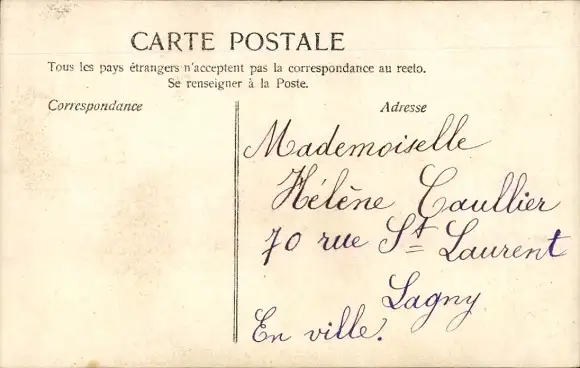 CARTE POSTALE
Tous les pays étrangers n'acceptent pas la correspondance au recto.
Se renseigner à la Poste.
Correspondance
Adresse
Mademoiselle
Hélène Caullier
70 rue St Laurent
Lagny
En ville.